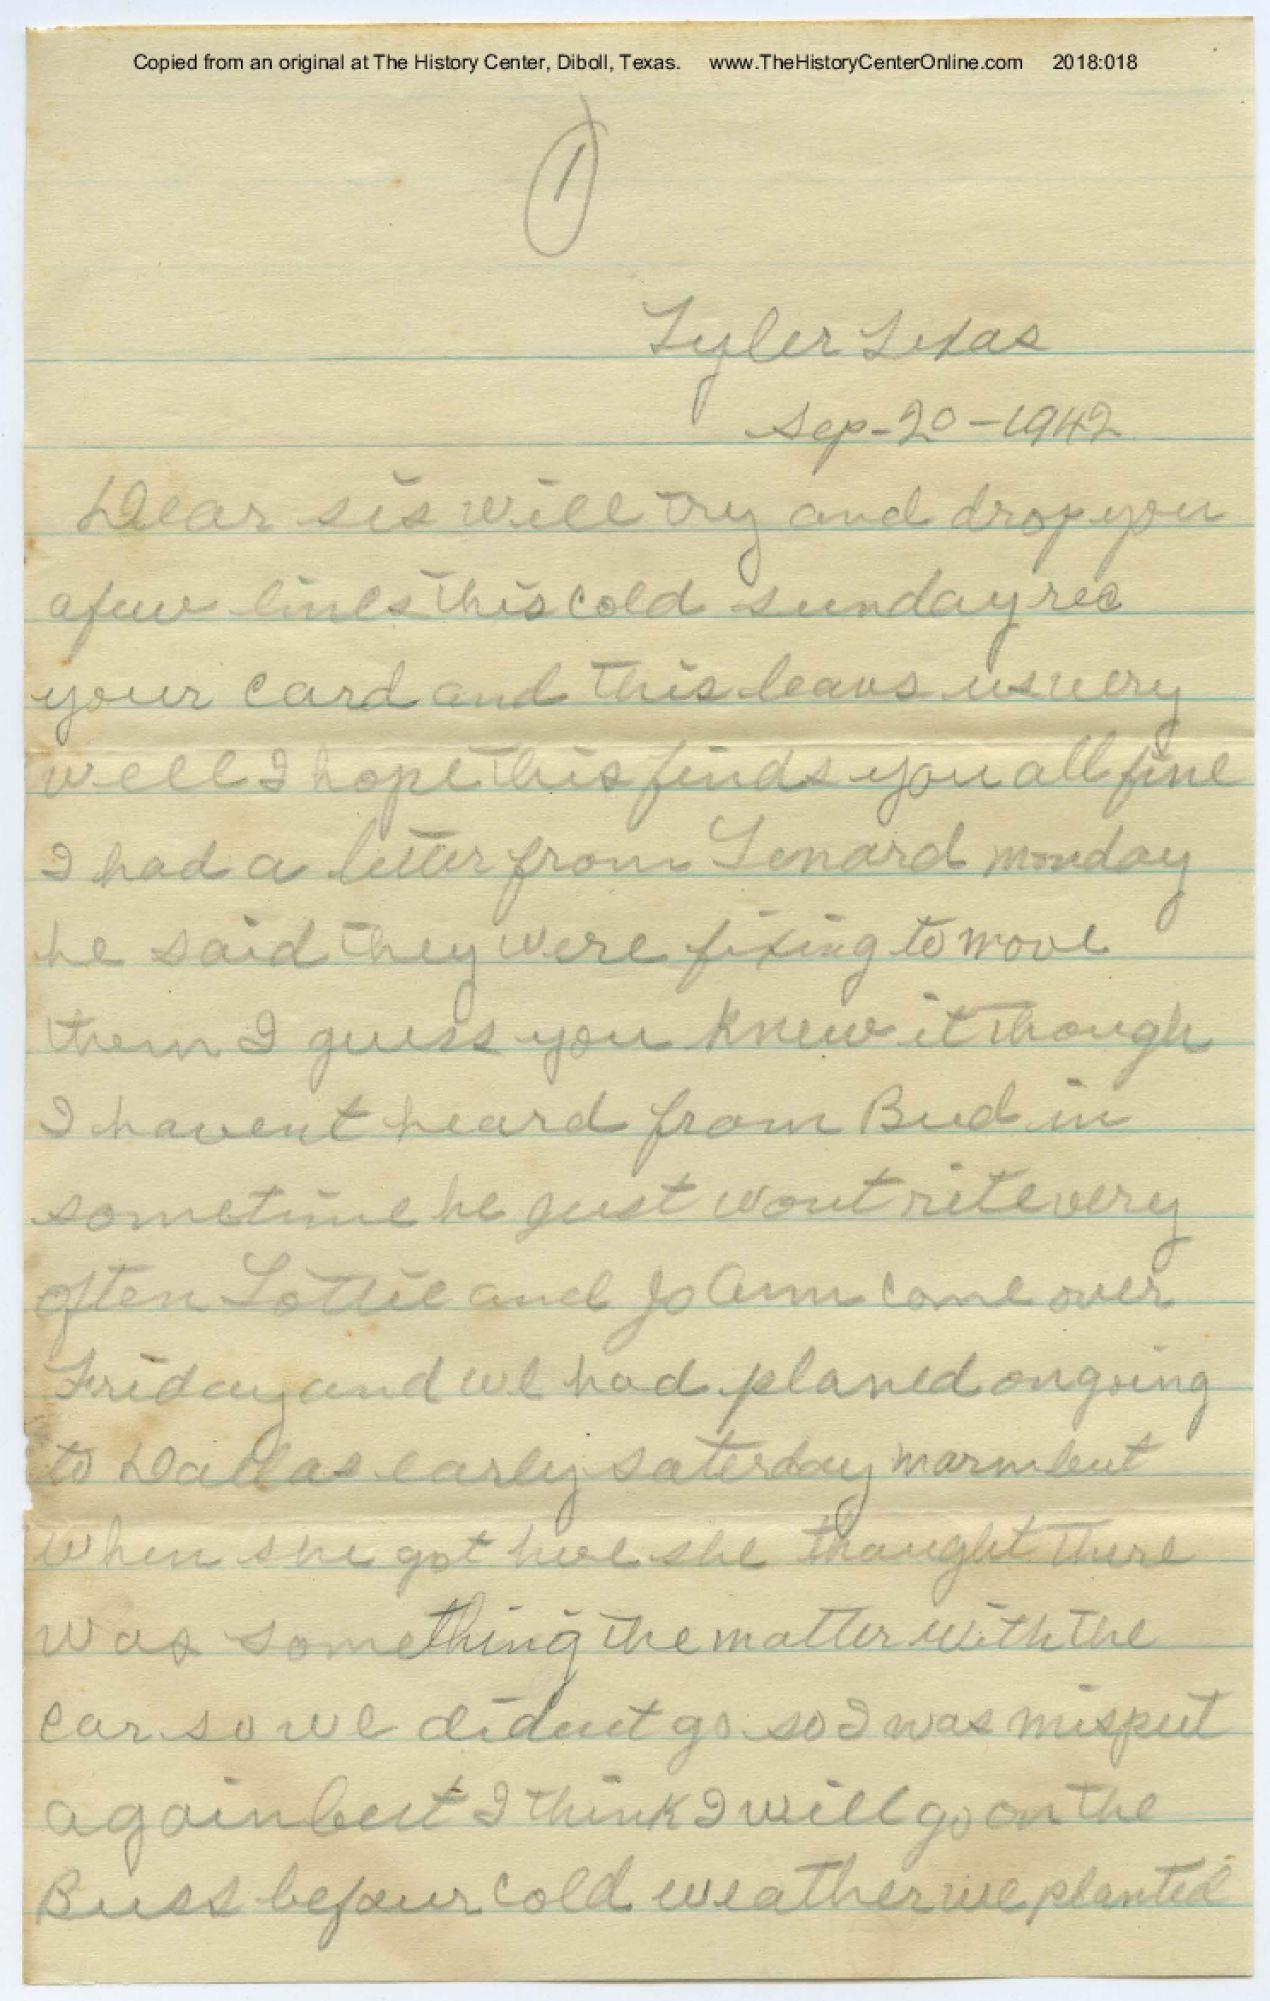 Copied from an original at The History Center, Diboll, Texas. www.TheHistoryCenterOnline.com 2018:018
1
Tyler Texas
Sep-20-1942
Dear sis will try and drop you
a few lines this cold sunday rec
your card and this leavs us very
well I hope this finds you all fine
I had a letter from Lenard monday
he said they were fixing to move
them I guess you knew it though
I havent heard from Bud in
sometime he just wont rite very
often Lottie and Jo Ann come over
Friday and we had planed on going
to Dallas early saterday marn but
when she got here she thought there
was something the matter with the
car so we didnt go so I was misput
again but I think I will go on the
Buss befour cold weather we planted